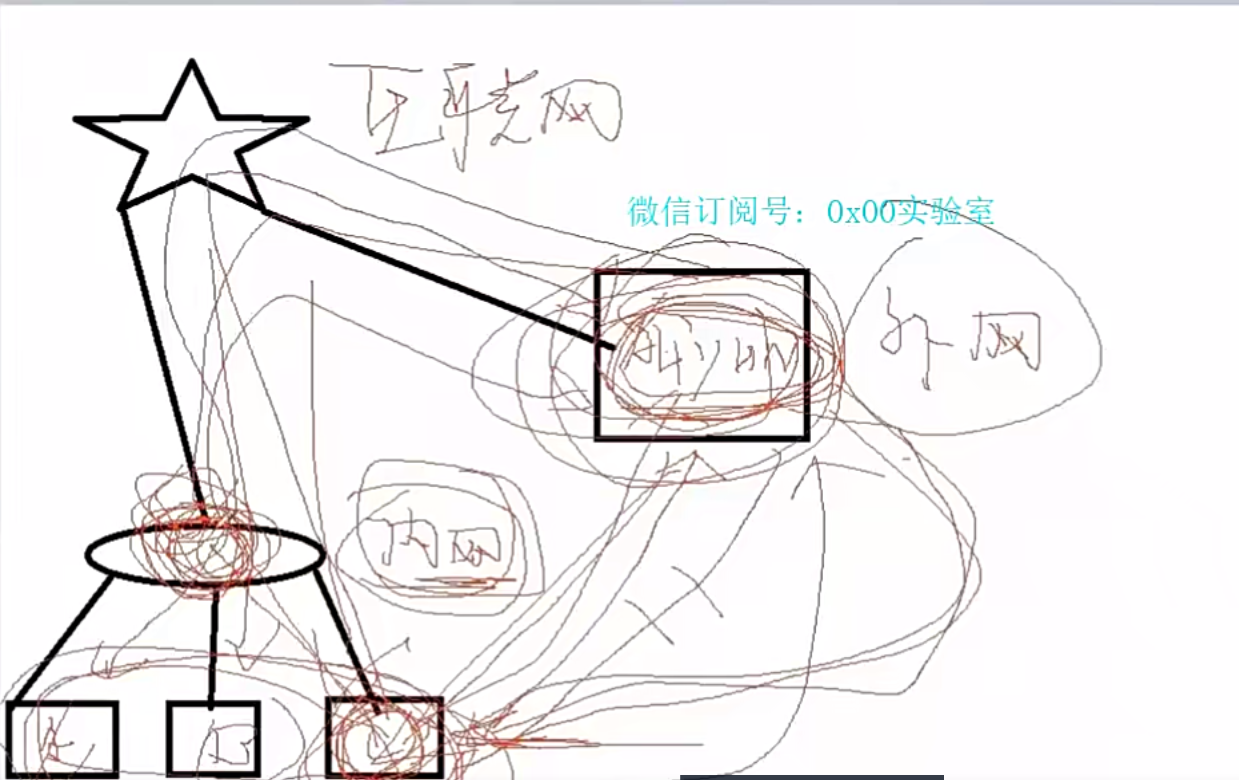 互联网
微信订阅号：0x00实验室
外网
内网
A
B
C